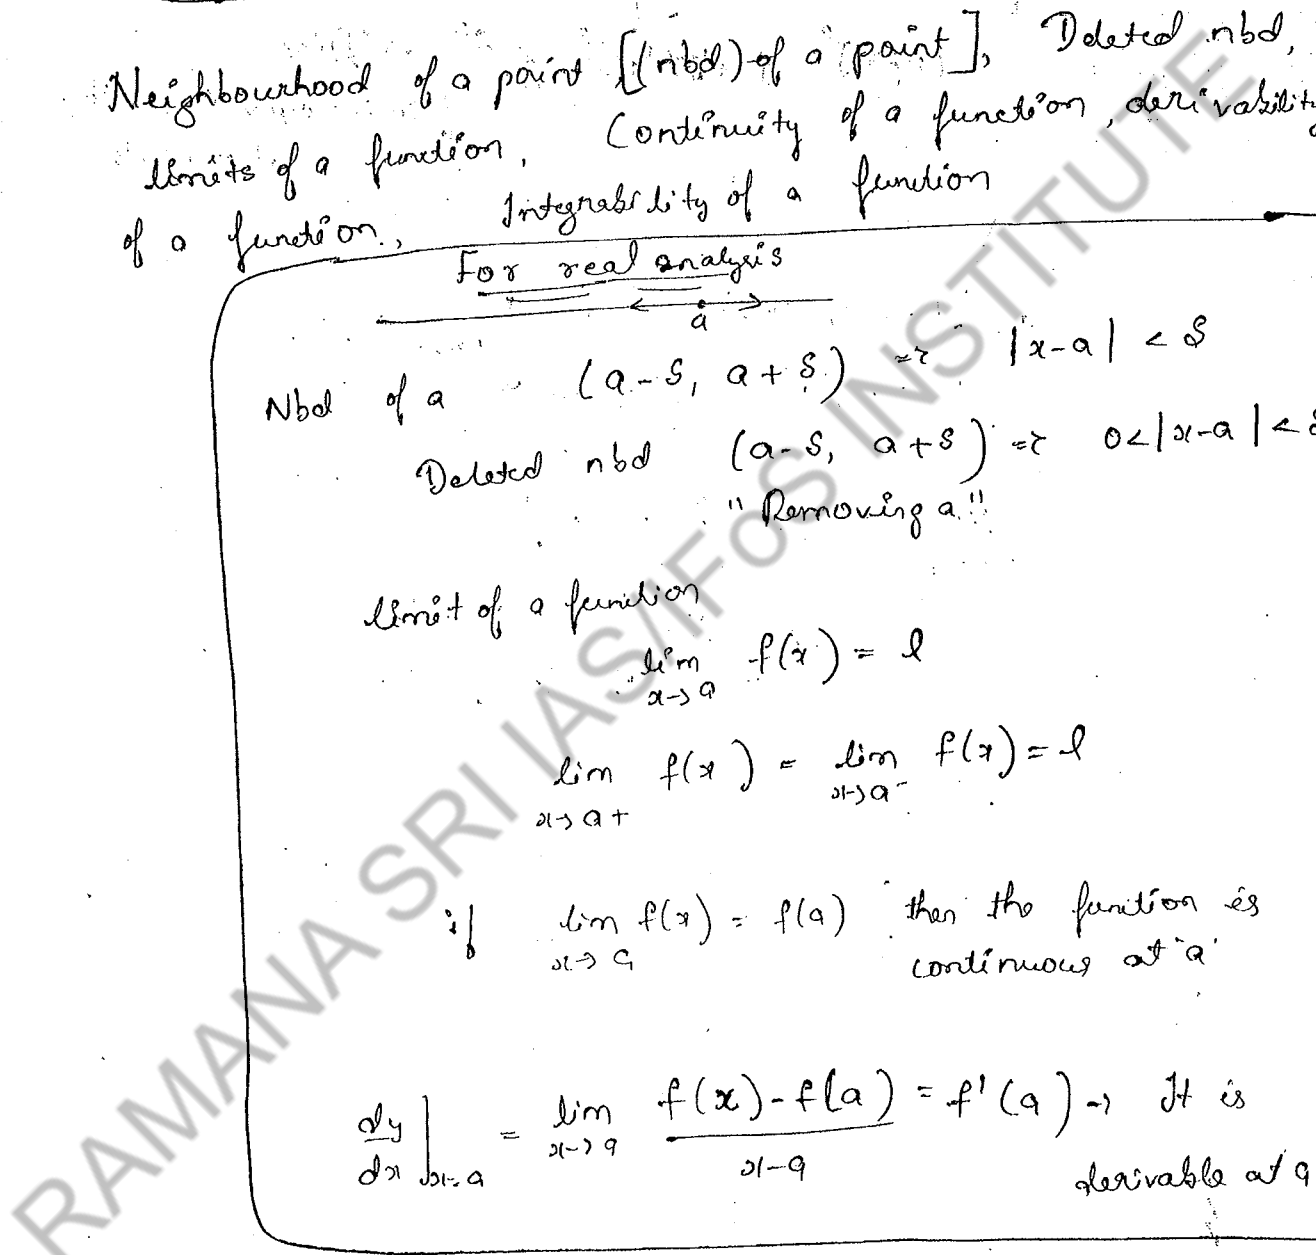 Neighbourhood of a point [(nbd) of a point], Deleted nbd,
limits of a function, Continuity of a function, derivability
of a function, Integrability of a function
For real analysis
a
Nbd of a (a-δ, a+δ) => |x-a| < δ
Deleted nbd (a-δ, a+δ) => 0<|x-a|<δ
"Removing a"
limit of a function
lim f(x) = l
x→a
lim f(x) = lim f(x) = l
x→a+ x→a-
if lim f(x) = f(a) then the function is
x→a continuous at 'a'
dy/dx|x=a = lim x→a f(x)-f(a)/x-a = f'(a) → It is
derivable at a
RAMANA SRI IAS/IFoS INSTITUTE